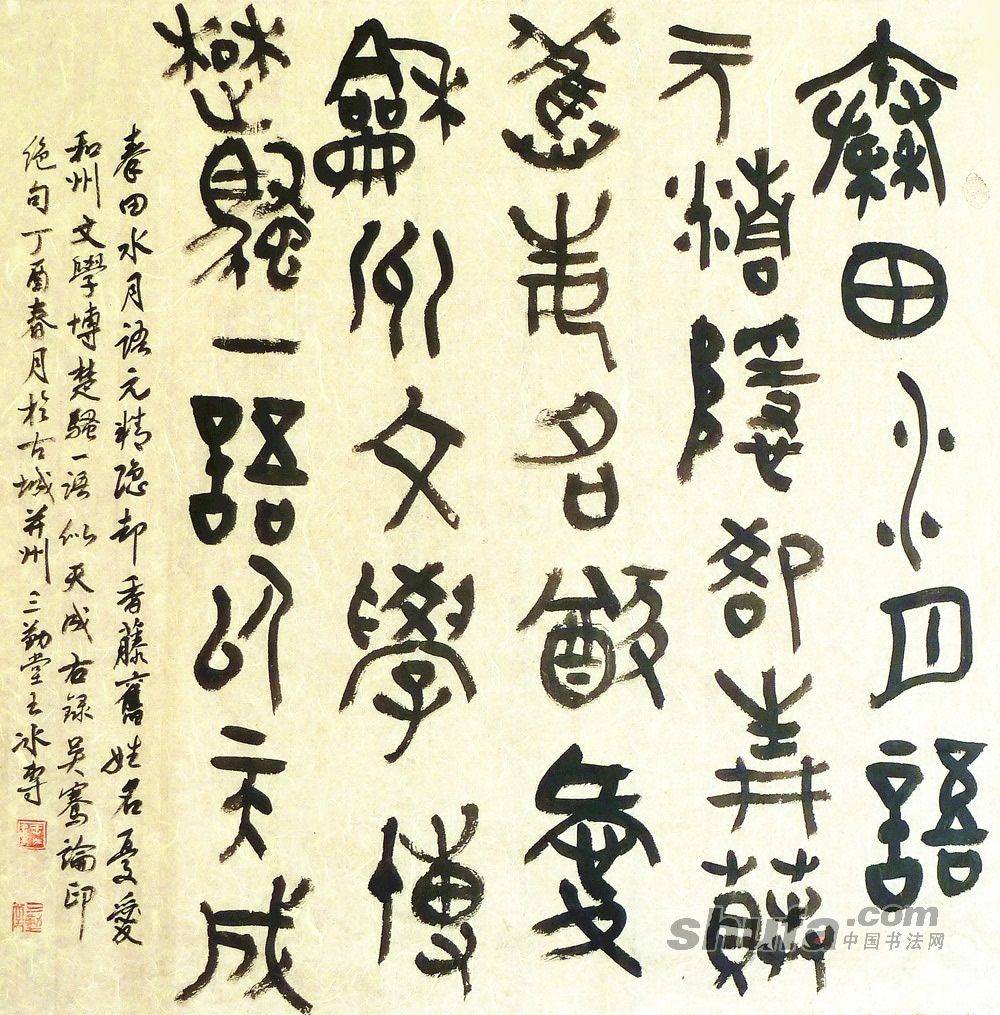 秦田水月語
元精隱却青藤
舊姓名愛
龢州文學博
楚騷一語似天成
秦田水月語元精隐却青藤舊姓名愛
和州文學博楚騷一語似天成右録吴騫論印
絶句丁酉春月於古城并州三勤堂王冰書
shufa.com
中国书法网